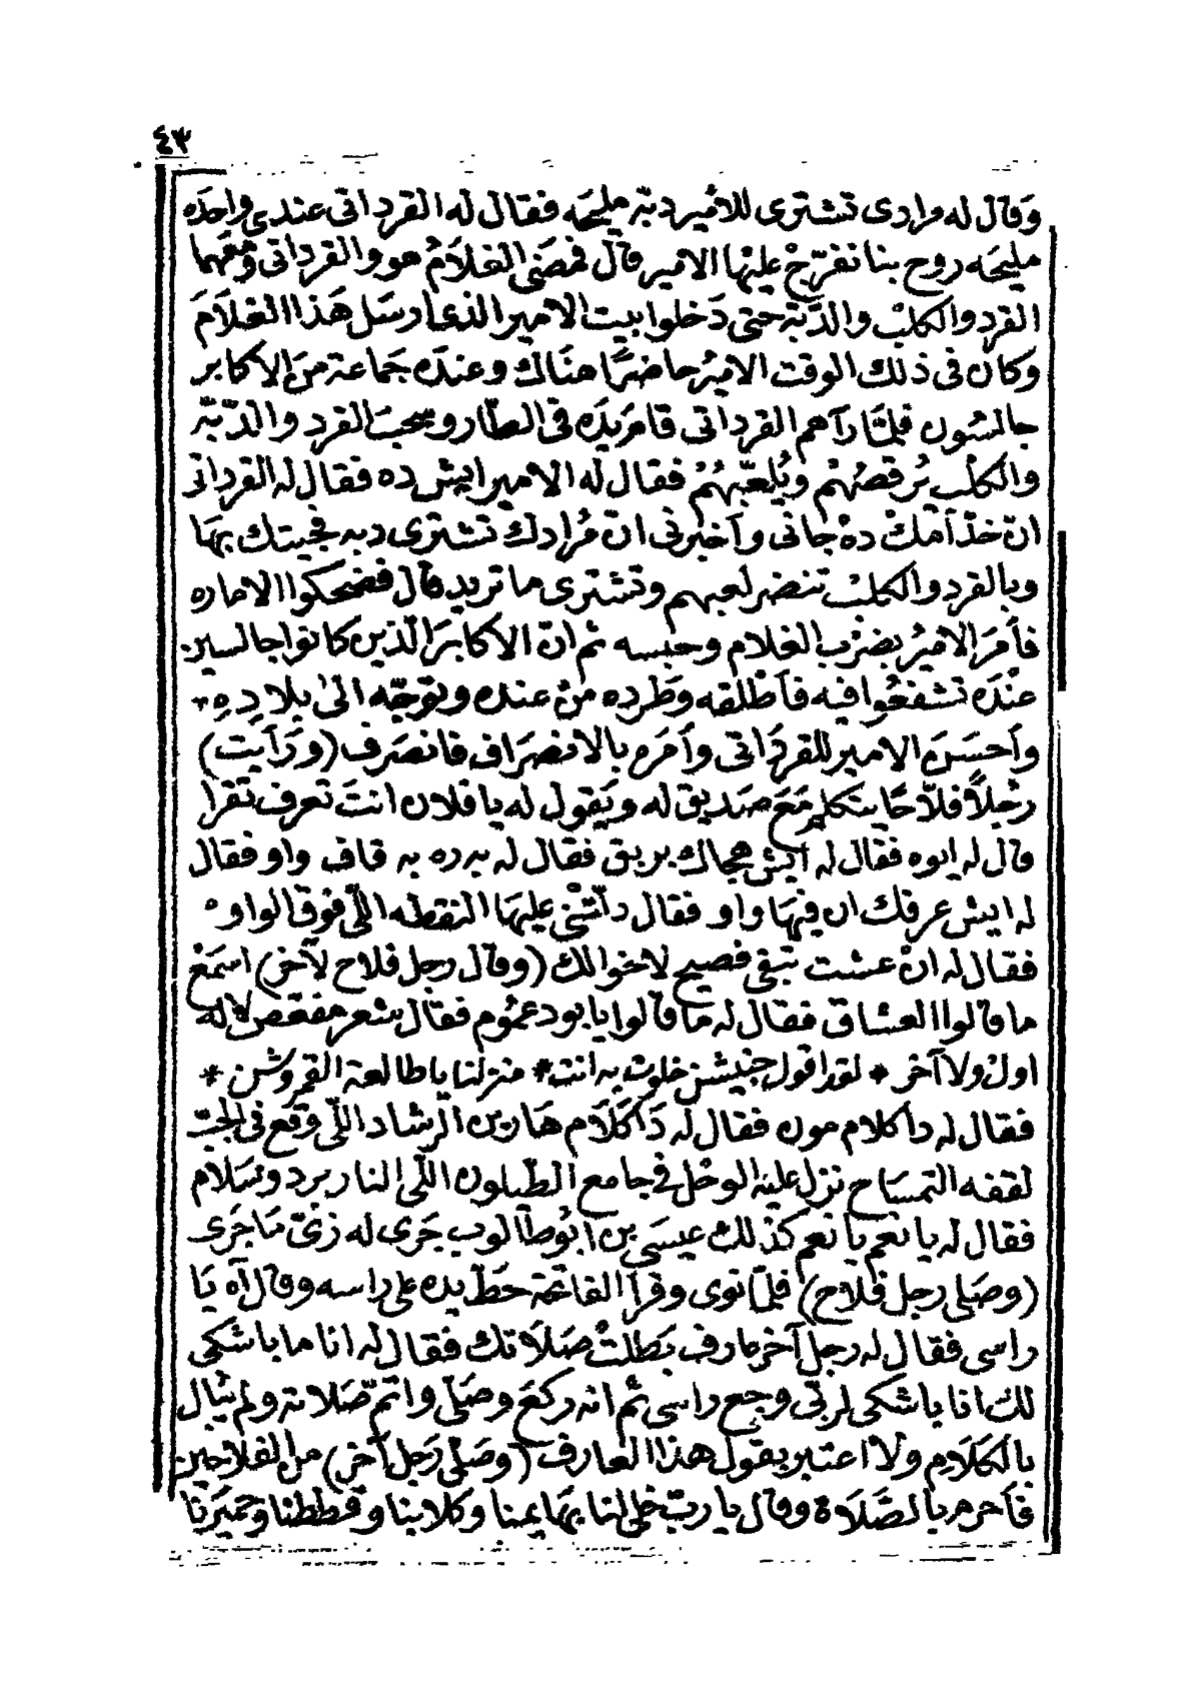 ٤٣
وقال له مرادى تشترى للامير دبّه مليحه فقال له القرداتى عندى واحده
مليحه روح بنا نفرّج عليها الامير قال فمضى الغلام هو والقرداتى ومعهما
القرد والكلب والدّبّة حتى دخلوا بيت الامير الذى ارسل هذا الغلام
وكان فى ذلك الوقت الامير حاضرًا هناك وعنده جماعة من الاكابر
جالسون فلمّا رآهم القرداتى قام يده فى الطار وسحب القرد والدّبّه
والكلب يُرقصُهُم ويُلعّبهُمْ فقال له الامير ايش ده فقال له القرداتى
انّ خدّامك ده جانى واخبرنى انّ مُرادك تشترى دبه فجيتك بها
وبالقرد والكلب تنضر لعبهم وتشترى ما تريد قال فضحكوا الاماره
فأمَرَ الامير بضرب الغلام وحبسه ثم انّ الاكابرَ الّذين كانوا جالسين
عنْدَه تشفعُوا فيه فأطلقه وطرده منْ عنده وتوجّه الىٰ بلادِهِ
وأحسَنَ الامير للقرداتى وأمَره بالانصراف فانصَرف (ورَأيت)
رجُلاً فلاّحًا يتكلم مَعَ صَديق له ويَقول له يا فلان انتَ تعرف تقرا
قال له ايوه فقال له ايش هجاك بريق فقال له به رده به قاف واو فقال
له ايش عرفك ان فيها واو فقال دلّتنى عليها النقطه اللّى فوق الواو
فقال له انْ عشت تبقى فصيح لاخوالك (وقال رجل فلاح لآخر) اسمَعْ
ما قالوا العشاق فقال له ما قالوا يا بو دعموم فقال شعر مفقص لا له
اول ولا آخر * لقد اقول جنيشن خلوت به انت * منزلنا يا طالعة القمروشن *
فقال له دا كلام مون فقال له دَا كَلَام هَارين الرشاد اللّى وقع فى الجبّ
لقفه التمسَاح نزل علينه الوحْل فى جامع الطبلون اللّى النار برد وسَلام
فقال له يا نعم يا نعم كذلك عيسَى بن ابُوطالوب جَرى له زىّ مَا جَرى
(وصَلى رجل فلاح) فلمّا نوى وقرأ الفاتحة حَطّ يده على راسه وقال آه يَا
راسى فقال له رجل آخر عارف بَطَلتْ صَلَاتك فقال له انا ما باشكى
لك انا باشكى لربّى وجع راسى ثم انه ركعَ وصَلّى واتمّ صَلاته ولم يُبال
بالكَلَام ولا اعتبر بقول هذا العارف (وصَلّى رَجل آخر) من الفلاحين
فأحرم بالصَّلَاة وقال يا ربّ خلّى لنا بَهايمنا وكلابنا وقططنا وحَميرنَا